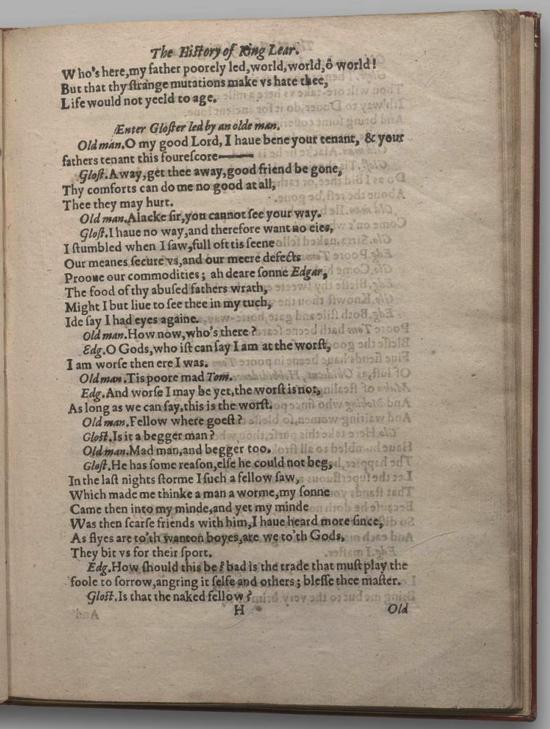 The Hiſtory of King Lear.
Who's here,my father poorely led,world,world,ô world!
But that thy ſtrange mutations make vs hate thee,
Life would not yeeld to age.
Enter Gloſter led by an olde man.
Old man.O my good Lord, I haue bene your tenant, & your
fathers tenant this foureſcore——
Gloſt.Away,get thee away,good friend be gone,
Thy comforts can do me no good at all,
Thee they may hurt.
Old man.Alacke ſir,you cannot ſee your way.
Gloſt.I haue no way,and therefore want no eies,
I ſtumbled when I ſaw,full oft tis ſeene
Our meanes ſecure vs,and our meere defects
Prooue our commodities ; ah deare ſonne Edgar,
The food of thy abuſed fathers wrath,
Might I but liue to ſee thee in my tuch,
Ide ſay I had eyes againe.
Old man.How now,who's there ?
Edg.O Gods,who iſt can ſay I am at the worſt,
I am worſe then ere I was.
Old man.Tis poore mad Tom.
Edg.And worſe I may be yet,the worſt is not,
As long as we can ſay,this is the worſt.
Old man.Fellow where goeſt ?
Gloſt.Is it a begger man ?
Old man.Mad man,and begger too.
Gloſt.He has ſome reaſon,elſe he could not beg,
In the laſt nights ſtorme I ſuch a fellow ſaw,
Which made me thinke a man a worme,my ſonne
Came then into my minde,and yet my minde
Was then ſcarſe friends with him,I haue heard more ſince,
As flyes are to'th wanton boyes,are we to'th Gods,
They bit vs for their ſport.
Edg.How ſhould this be ? bad is the trade that muſt play the
foole to ſorrow,angring it ſelfe and others ; bleſſe thee maſter.
Gloſt.Is that the naked fellow ?
H Old